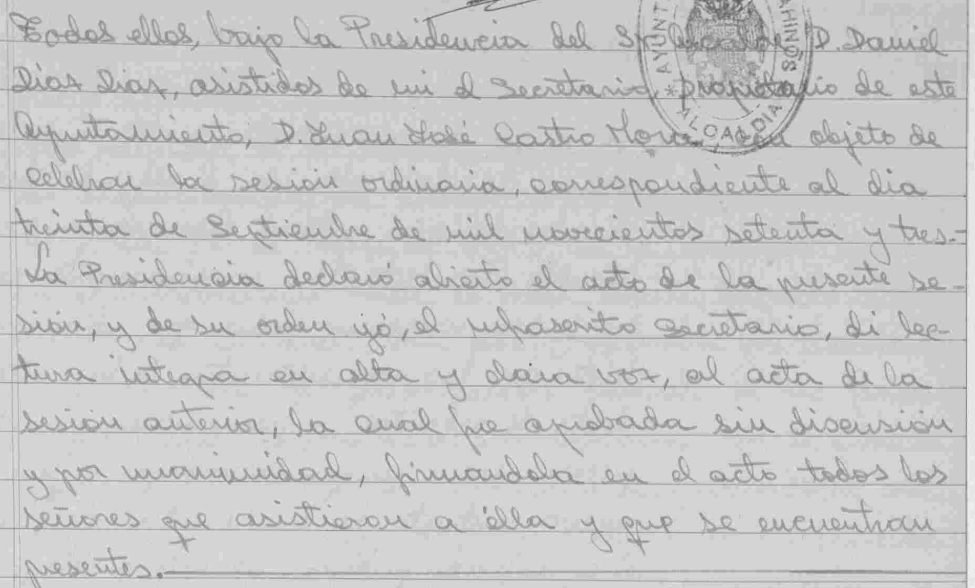 Todos ellos, bajo la Presidencia del Sr. Alcalde D. Daniel
Díaz Díaz, asistidos de mi el Secretario, propietario de este
Ayuntamiento, D. Juan José Castro Mora, con objeto de
celebrar la sesión ordinaria, correspondiente al dia
treinta de Septiembre de mil novecientos setenta y tres.-
La Presidencia declaró abierto el acto de la presente se-
sión, y de su orden yó, el infrascrito secretario, di lec-
tura integra en alta y clara voz, al acta de la
sesión anterior, la cual fue aprobada sin discusión
y por unanimidad, firmandola en el acto todos los
señores que asistieron a élla y que se encuentran
presentes.
AYUNT
ALCALDIA